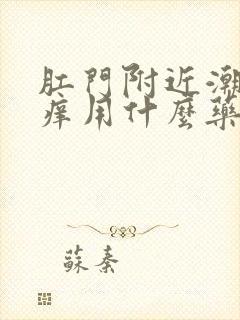 肛門附近潮
痒用什麼藥
蘇秦